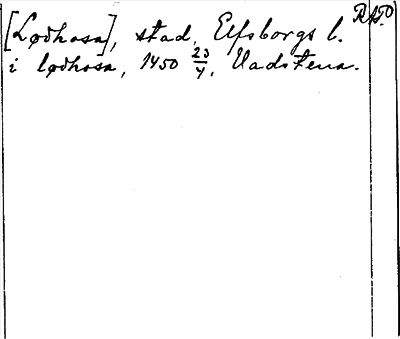 [Lødhosa], stad, Elfsborgs l.
i lødhosa, 1450 23/4, Vadstena.